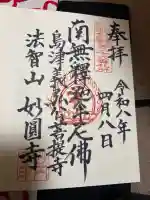 奉拝
令和八年
四月八日
南無釋迦牟尼佛
島津義弘公菩提寺
法智山 妙圓寺